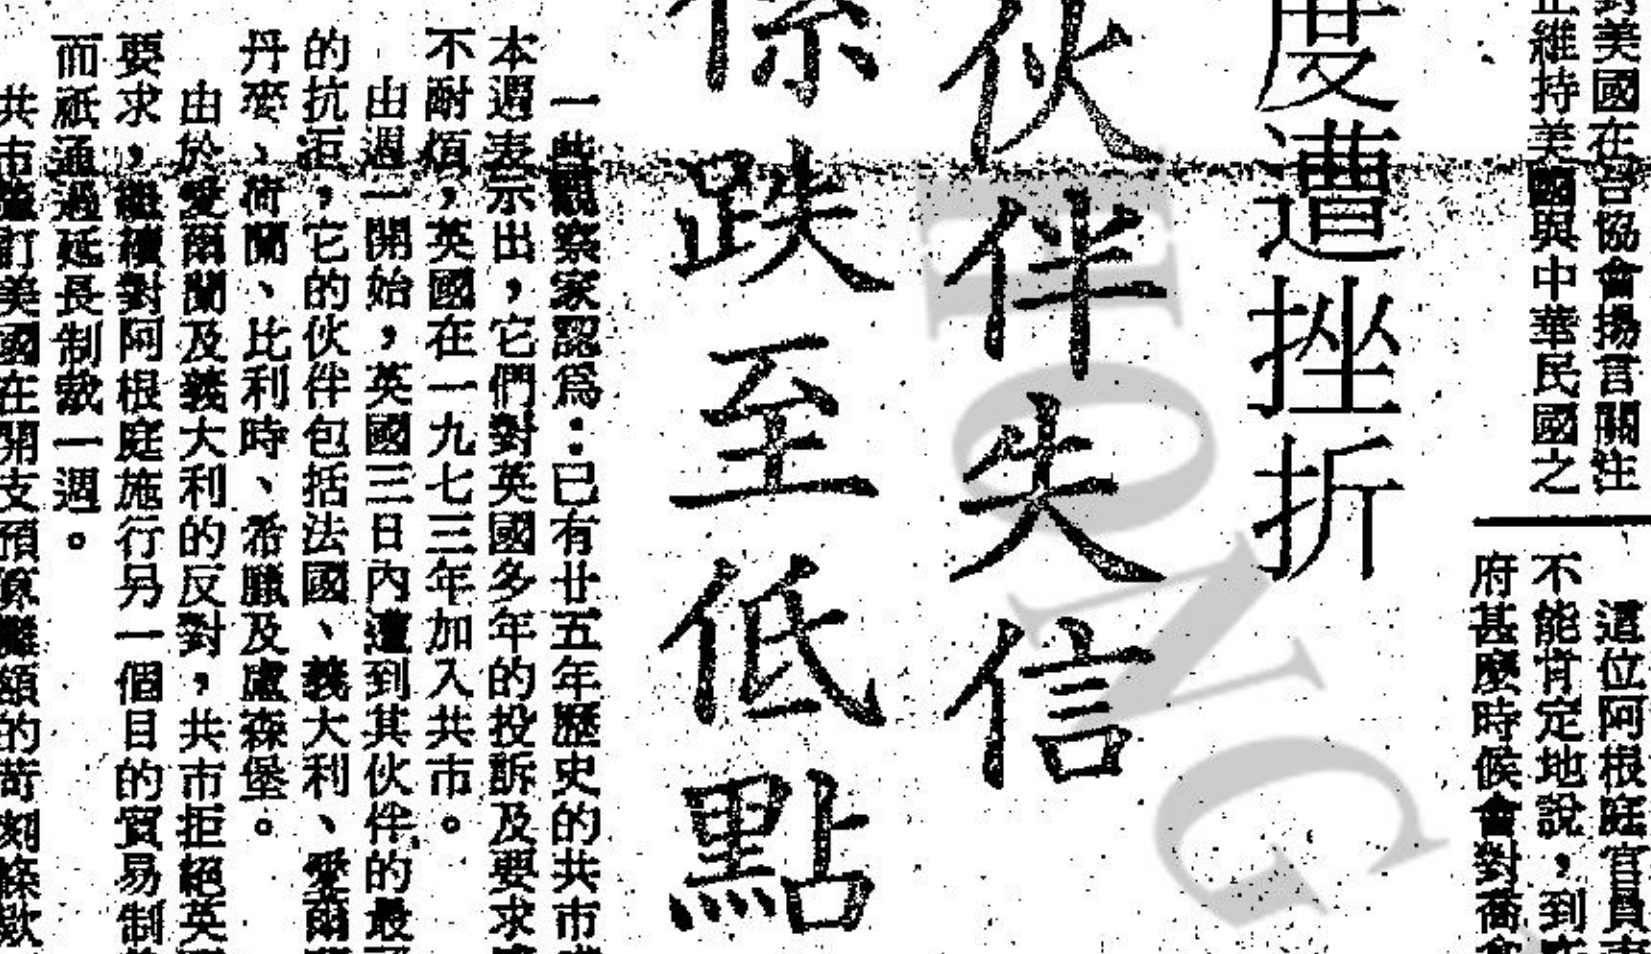 對美國在台協會揚言關注
維持美國與中華民國之
這位阿根庭官員
不能肯定地說，到
府甚麼時候會對喬
度遭挫折
伙伴失信
係跌至低點
一些觀察家認爲：已有廿五年歷史的共市
本週表示出，它們對英國多年的投訴及要求
不耐煩，英國在一九七三年加入共市。
由週一開始，英國三日內遭到其伙伴的最
的抗拒，它的伙伴包括法國、義大利、愛爾
丹麥、荷蘭、比利時、希臘及盧森堡。
由於愛爾蘭及義大利的反對，共市拒絕英
要求，繼續對阿根庭施行另一個目的貿易制
而祇通過延長制裁一週。
共市簽訂美國在開支預算攤額的苛刻條款
EONG